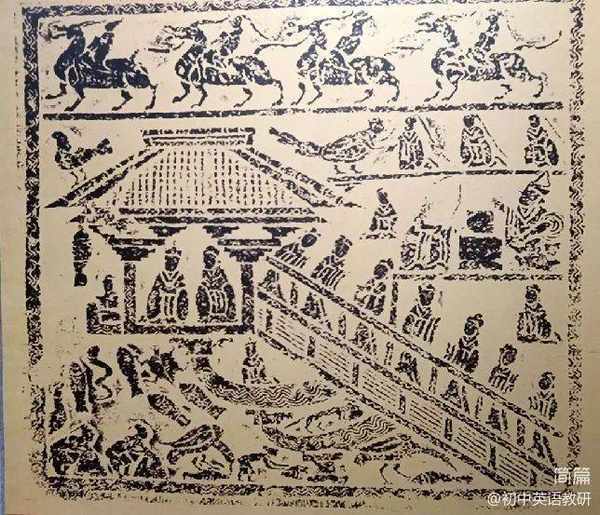 简篇
@初中英语教研